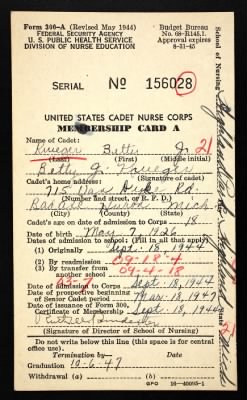 Form 300-A (Revised May 1944)
FEDERAL SECURITY AGENCY
U. S. PUBLIC HEALTH SERVICE
DIVISION OF NURSE EDUCATION
Budget Bureau
No. 68-R145.1.
Approval expires
8-31-45
SERIAL No 156028
UNITED STATES CADET NURSE CORPS
MEMBERSHIP CARD A
Name of Cadet:
Krueger Betty J. 21
(Last) (First) (Middle initial)
Betty J. Krueger
(Signature of cadet)
Cadet's home address:
715 Rd.
(Number and street, or R. F. D.)
Mich.
(City) (County) (State)
Cadet's age on date of admission to Corps 18
Date of birth May 7, 1926
Dates of admission to school: (Fill in all that apply)
(1) Originally Sept. 18, 1944
(2) By readmission 09-18-4
(3) By transfer from another school 09-4-18
Date of admission to Corps Sept. 18, 1944
Date of prospective beginning of Senior Cadet period Mar. 18, 1947
Date of issuance of Form 300, Certificate of Membership Sept. 18, 1944
(Signature of Director of School of Nursing)
Do not write below this line (this space is for central office use).
Termination by Date
Graduation 10-6-47
Withdrawal (a) (b)
GPO 16-40095-1
School of Nursing
State
21